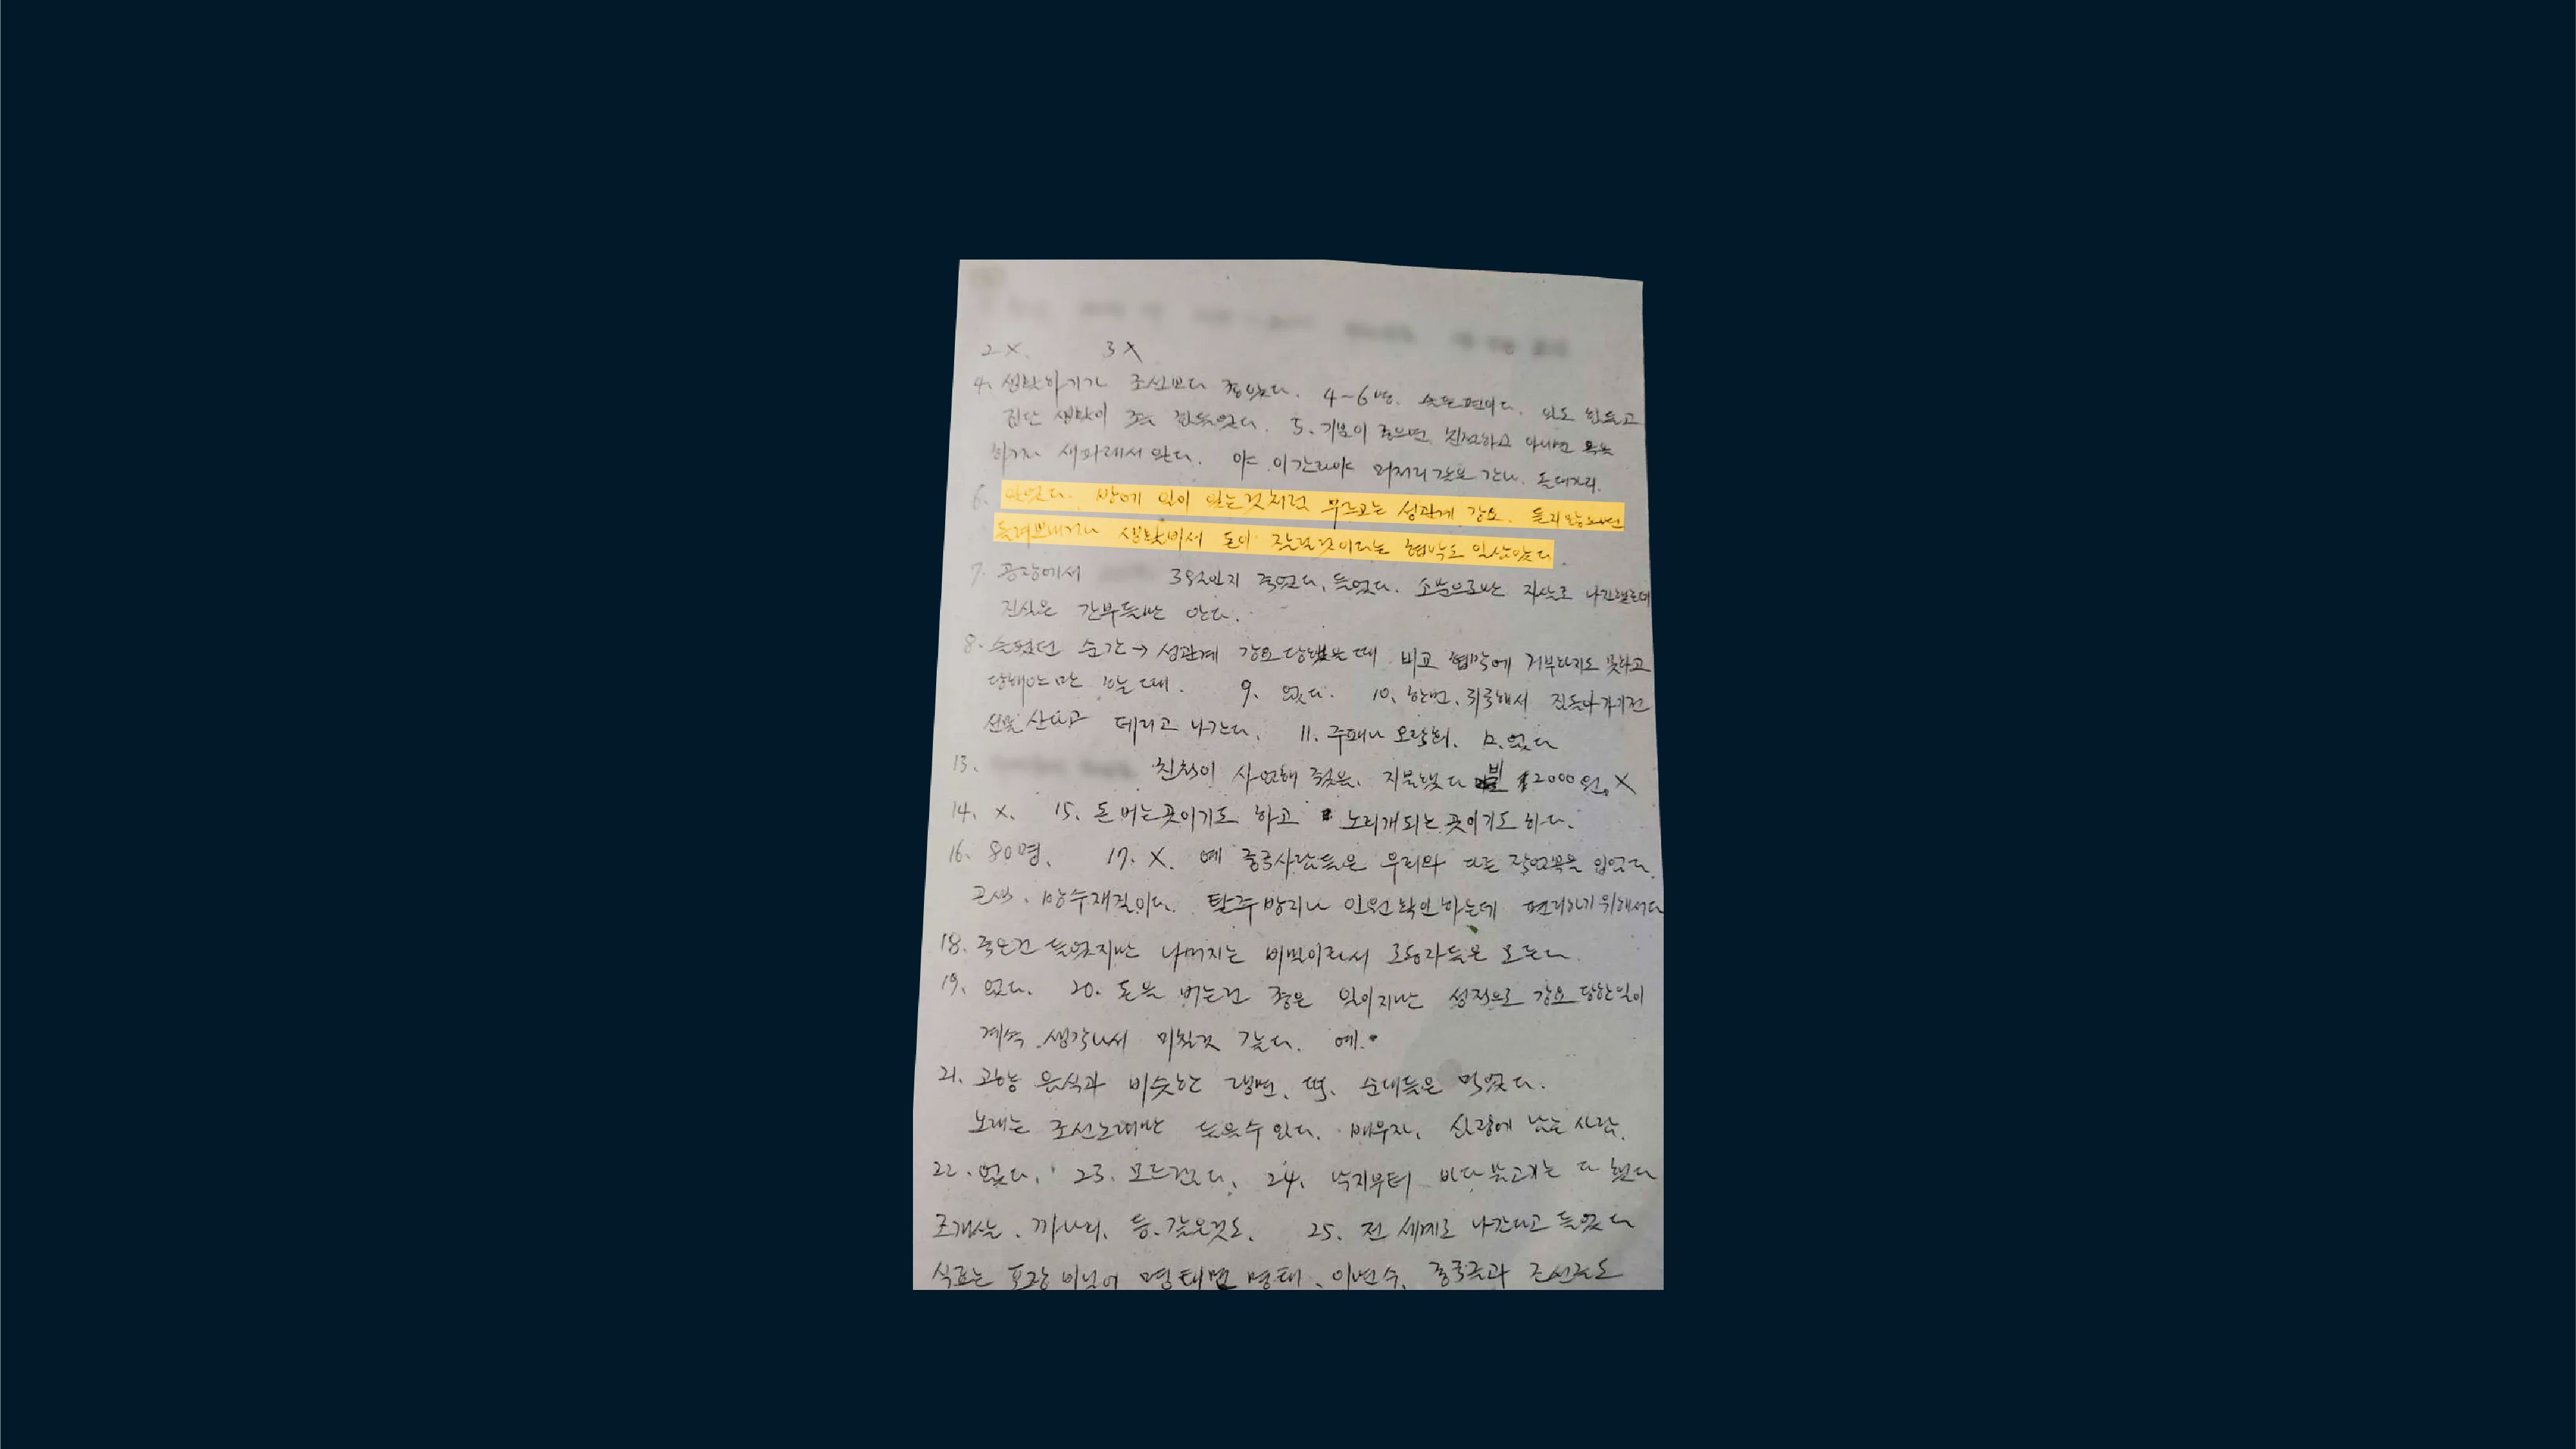 2 X. 3 X
4. 생활하기가 조선보다 좋았다. 4~6명. 일도 힘들고
집단 생활이 힘들었다. 5. 기분이 좋으면 친절하고 아니면 욕을
하거나 야 이간나야 머저리같은 간나. 돌대가리.
6. 있었다. 방에 일이 있는것처럼 부르고는 성관계 강요. 들지않으면
돌려보내거나 생활비에서 돈이 잘릴것이다는 협박도 일삼았다
7. 공장에서 죽었다, 들었다. 소문으로만 자살로
진실은 간부들만 안다.
8. 슬펐던 순간→성관계 강요당했을때 협박에 거부하지도 못하고
당해야만 했을 때. 9. 없다. 10. 한번, 귀국해서 집돌아가기전
선물 산다고 데리고 나간다. 11. 주패나 오락회. 12. 없다
13. 친척이 사업해 줬음. 지불했다 비 2000원. X
14. X. 15. 돈버는곳이기도 하고 노리개되는곳이기도 하다.
16. 80명. 17. X. 예 중국사람들은 우리와 다른 작업복을 입었다.
곤색. 방수재질이다. 탈주방지나 인원확인하는데 편리하기위해서다
18. 죽은건 들었지만 나머지는 비밀이라서 로동자들은 모른다
19. 없다. 20. 돈을 버는건 좋은 일이지만 성적으로 강요당한일이
계속 생각나서 미칠것 같다. 예.
21. 고향 음식과 비슷한 랭면, 떡, 순대들은 먹었다.
노래는 조선노래만 들을수 있다. 배우자,
22. 없다. 23. 모르겠다. 24. 낙지부터 바다물고기는 다 했다
조개살, 까나리, 등. 같은것도. 25. 전 세계로 나간다고 들었다
식료는 포장 비닐에 명태면 명태, 이면수, 중국글과 조선글도